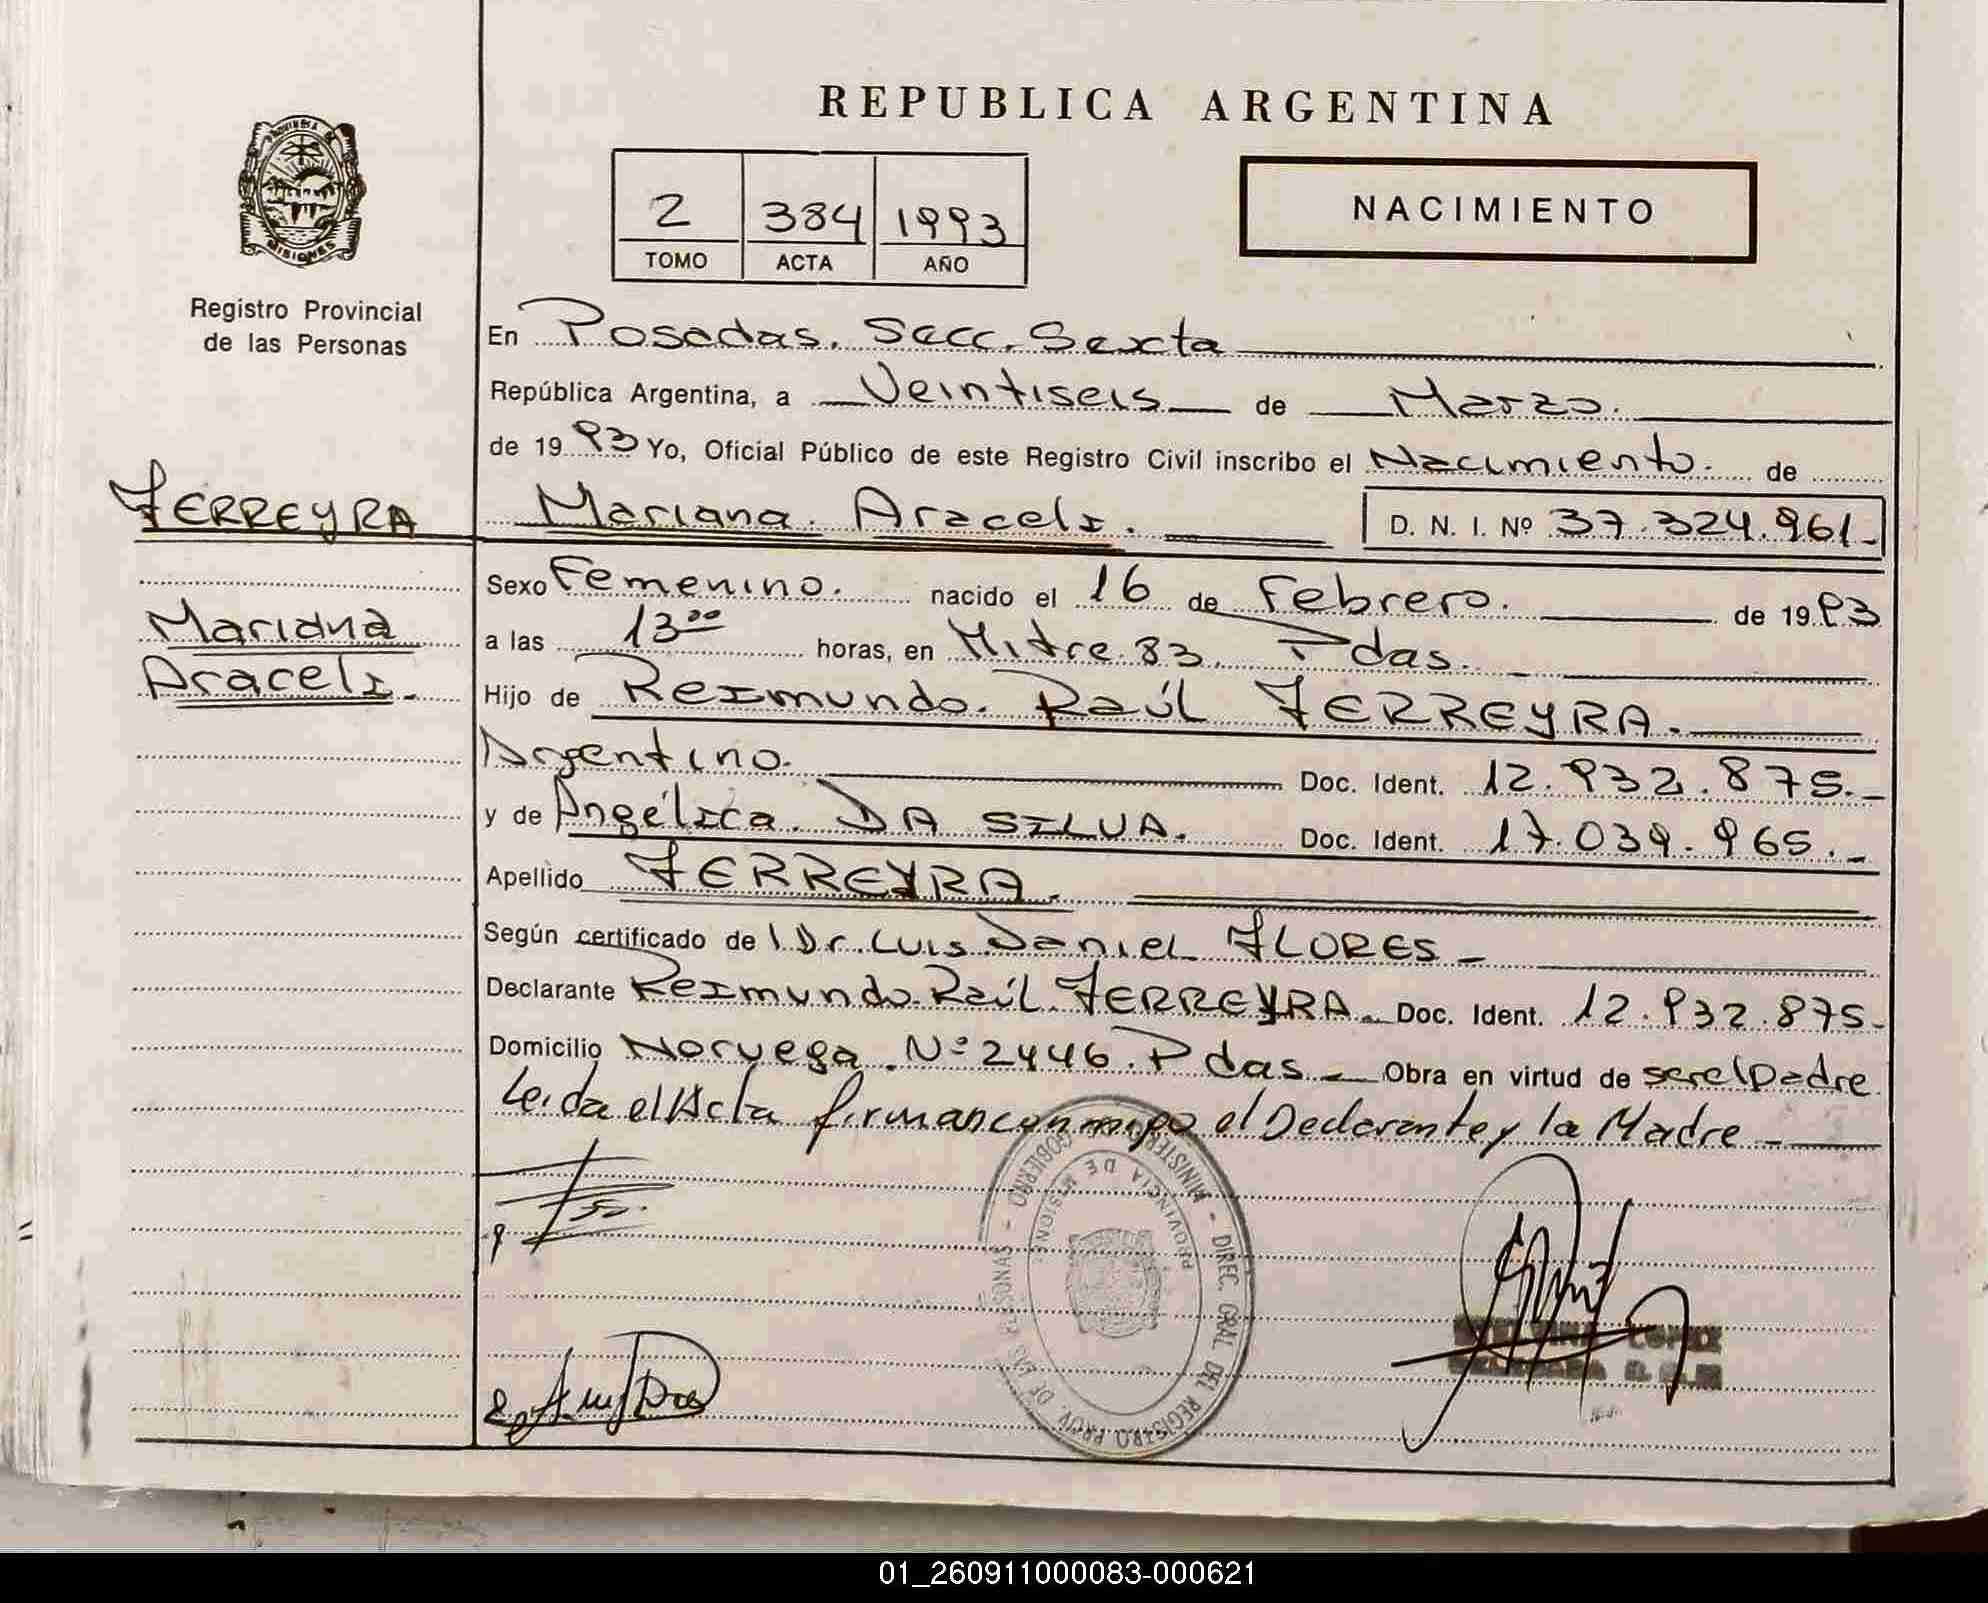 REPUBLICA ARGENTINA
PROVINCIA DE
MISIONES
Registro Provincial
de las Personas
2 384 1993
TOMO ACTA AÑO
NACIMIENTO
En Posadas. Secc. Sexta
República Argentina, a Veintiseis de Marzo.
de 19 93 Yo, Oficial Público de este Registro Civil inscribo el Nacimiento. de
FERREYRA
Mariana Araceli.
Mariana Araceli. D. N. I. Nº 37.324.961-
Sexo Femenino. nacido el 16 de Febrero. de 19 93
a las 13⁰⁰ horas, en Mitre 83. Pdas.
Hijo de Reimundo Raúl FERREYRA.
Argentino. Doc. Ident. 12.932.875.-
y de Angélica DA SILVA. Doc. Ident. 17.039.965.-
Apellido FERREYRA.
Según certificado de l Dr. Luis Daniel FLORES -
Declarante Reimundo Raúl FERREYRA. Doc. Ident. 12.932.875-
Domicilio Noruega Nº 2446. Pdas - Obra en virtud de ser el Padre
Leida el Acta firman conmigo el Declarante y la Madre -
MINISTERIO GOBIERNO - DIREC. GRAL DEL REGISTRO PROV. DE LAS PERSONAS -
PROVINCIA DE MISIONES
LOPEZ
01_260911000083-000621